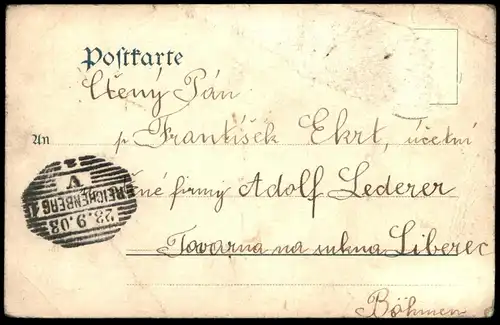 Postkarte
Ctěný Pán
An p František Ekrt, účetní
ctěné firmy Adolf Lederer
Tovarna na sukna Liberec
Böhmen
REICHENBERG 1
23.9.03
V